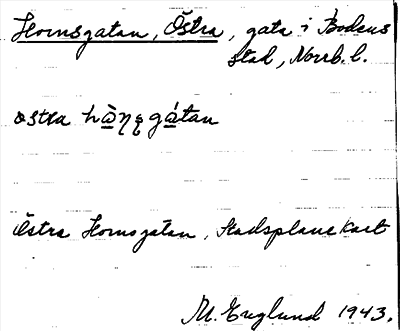 Hornsgatan, Östra, gata i Bodens
stad, Norrb. l.
östra
Östra Hornsgatan, Stadsplanekart
M. Englund 1943.